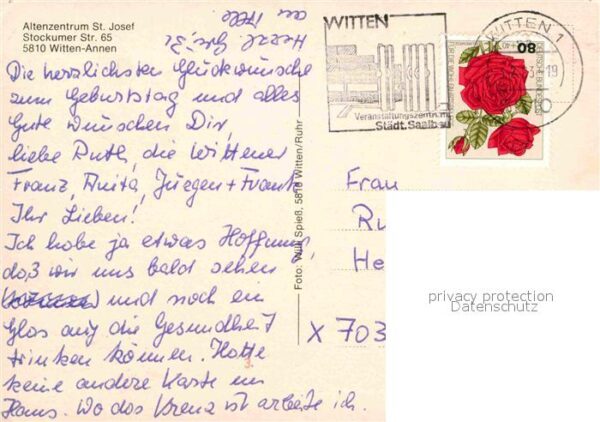 Altenzentrum St. Josef
Stockumer Str. 65
5810 Witten-Annen
Die herzlichsten Glückwünsche
zum Geburtstag und alles
Gute wünschen Dir,
liebe Ruth, die Wittener
Franz, Anita, Jürgen + Frank
Ihr Lieben!
Ich habe ja etwas Hoffnung,
daß wir uns bald sehen
und noch ein
Glas auf die Gesundheit
trinken können. Hatte
keine andere Karte im
Haus. Wo das Kreuz ist arbeite ich.
Herzl.
Foto: Willi Spieß, 5810 Witten/Ruhr
WITTEN
Veranstaltungszentrum
Städt. Saalbau
WITTEN 1
80
DEUTSCHE BUNDESPOST
Frau
Ru
He
X 703
privacy protection
Datenschutz